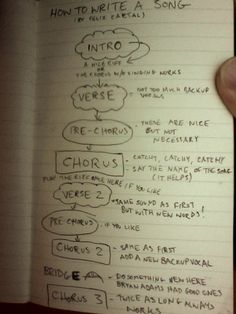 HOW TO WRITE A SONG
(BY FELIX CARTAL)
INTRO
A NICE RIFF OR
THE CHORUS W/O SINGING WORKS
VERSE
- NOT TOO MUCH BACKUP
VOCALS
PRE-CHORUS
- THESE ARE NICE
BUT NOT
NECESSARY
CHORUS
- CATCHY, CATCHY, CATCHY
- SAY THE NAME OF THE SONG
(IT HELPS)
PLAY THE RIFF AGAIN HERE IF YOU LIKE
VERSE 2
*SAME SOUND AS FIRST
BUT WITH NEW WORDS!
PRE-CHORUS
- IF YOU LIKE
CHORUS 2
- SAME AS FIRST
ADD A NEW BACKUP VOCAL
BRIDGE
- DO SOMETHING NEW HERE
BRYAN ADAMS HAD GOOD ONES
CHORUS 3
- TWICE AS LONG ALWAYS
WORKS